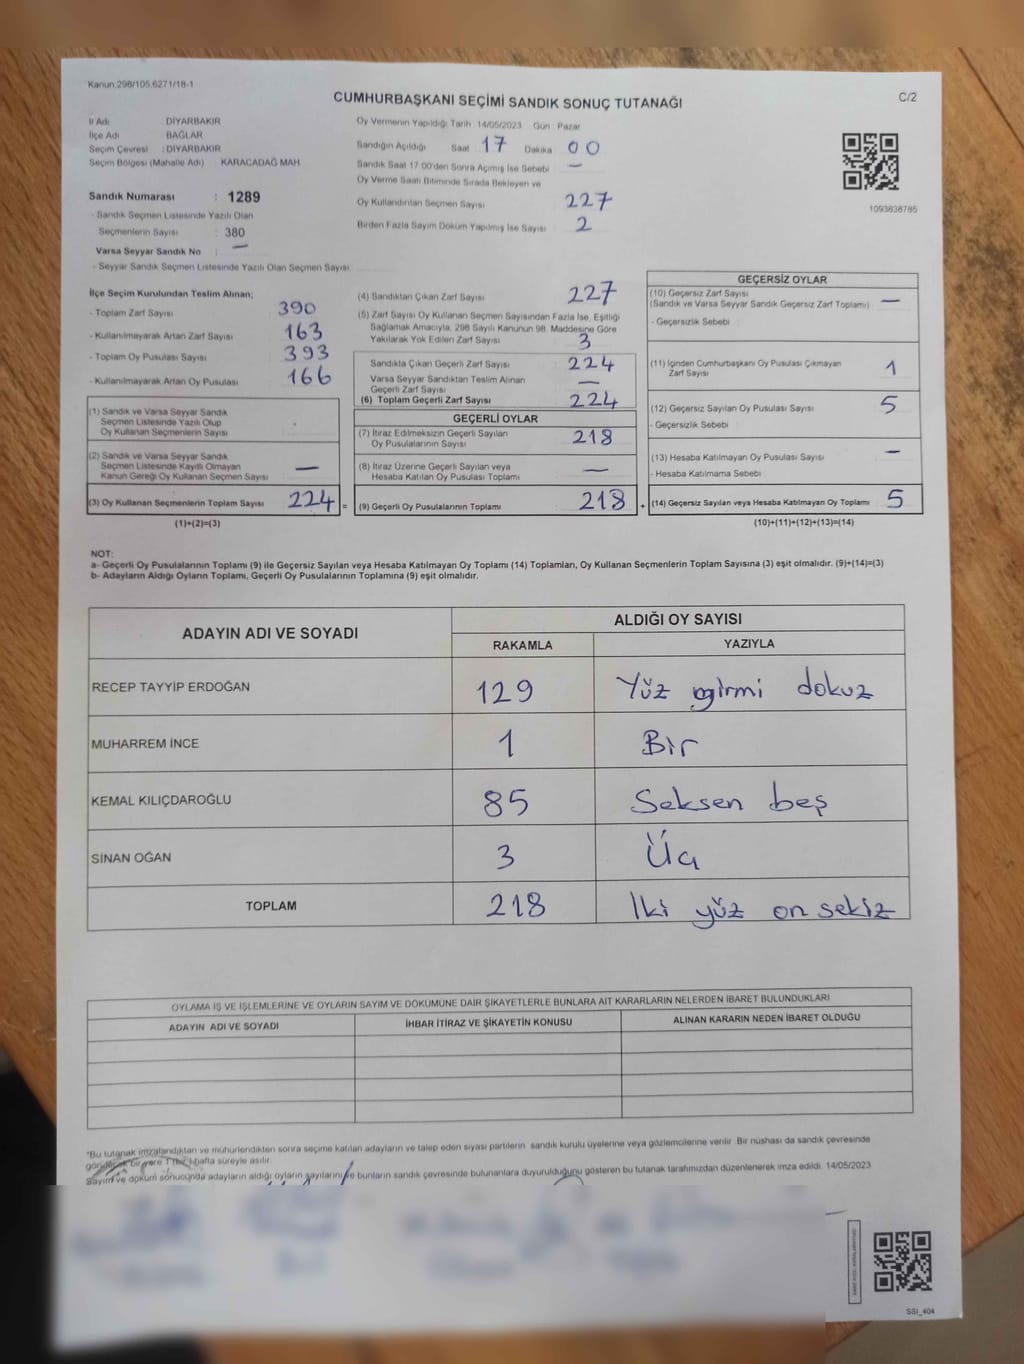 Kanun:298/105,6271/18-1
C/2
CUMHURBAŞKANI SEÇİMİ SANDIK SONUÇ TUTANAĞI
İl Adı DİYARBAKIR
İlçe Adı BAĞLAR
Seçim Çevresi : DİYARBAKIR
Seçim Bölgesi (Mahalle Adı) KARACADAĞ MAH.
Sandık Numarası : 1289
- Sandık Seçmen Listesinde Yazılı Olan
Seçmenlerin Sayısı : 380
Varsa Seyyar Sandık No : —
- Seyyar Sandık Seçmen Listesinde Yazılı Olan Seçmen Sayısı
Oy Vermenin Yapıldığı Tarih 14/05/2023 Gün : Pazar
Sandığın Açıldığı Saat 17 Dakika 00
Sandık Saat 17:00'den Sonra Açımış İse Sebebi —
Oy Verme Saati Bitiminde Sırada Bekleyen ve
Oy Kullandırılan Seçmen Sayısı 227
Birden Fazla Sayım Döküm Yapılmış İse Sayısı 2
1093838785
İlçe Seçim Kurulundan Teslim Alınan;
- Toplam Zarf Sayısı 390
- Kullanılmayarak Artan Zarf Sayısı 163
- Toplam Oy Pusulası Sayısı 393
- Kullanılmayarak Artan Oy Pusulası 166
(1) Sandık ve Varsa Seyyar Sandık
Seçmen Listesinde Yazılı Olup
Oy Kullanan Seçmenlerin Sayısı
(2) Sandık ve Varsa Seyyar Sandık
Seçmen Listesinde Kayıtlı Olmayan
Kanun Gereği Oy Kullanan Seçmen Sayısı —
(3) Oy Kullanan Seçmenlerin Toplam Sayısı 224 =
(1)+(2)=(3)
(4) Sandıktan Çıkan Zarf Sayısı 227
(5) Zarf Sayısı Oy Kullanan Seçmen Sayısından Fazla İse, Eşitliği
Sağlamak Amacıyla, 298 Sayılı Kanunun 98. Maddesine Göre
Yakılarak Yok Edilen Zarf Sayısı 3
Sandıkta Çıkan Geçerli Zarf Sayısı 224
Varsa Seyyar Sandıktan Teslim Alınan
Geçerli Zarf Sayısı —
(6) Toplam Geçerli Zarf Sayısı 224
GEÇERLİ OYLAR
(7) İtiraz Edilmeksizin Geçerli Sayılan
Oy Pusulalarının Sayısı 218
(8) İtiraz Üzerine Geçerli Sayılan veya
Hesaba Katılan Oy Pusulası Toplamı —
(9) Geçerli Oy Pusulalarının Toplamı 218 +
GEÇERSİZ OYLAR
(10) Geçersiz Zarf Sayısı
(Sandık ve Varsa Seyyar Sandık Geçersiz Zarf Toplamı) —
- Geçersizlik Sebebi :
(11) İçinden Cumhurbaşkanı Oy Pusulası Çıkmayan
Zarf Sayısı 1
(12) Geçersiz Sayılan Oy Pusulası Sayısı 5
- Geçersizlik Sebebi :
(13) Hesaba Katılmayan Oy Pusulası Sayısı —
- Hesaba Katılmama Sebebi :
(14) Geçersiz Sayılan veya Hesaba Katılmayan Oy Toplamı 5
(10)+(11)+(12)+(13)=(14)
NOT:
a- Geçerli Oy Pusulalarının Toplamı (9) ile Geçersiz Sayılan veya Hesaba Katılmayan Oy Toplamı (14) Toplamları, Oy Kullanan Seçmenlerin Toplam Sayısına (3) eşit olmalıdır. (9)+(14)=(3)
b- Adayların Aldığı Oyların Toplamı, Geçerli Oy Pusulalarının Toplamına (9) eşit olmalıdır.
ADAYIN ADI VE SOYADI ALDIĞI OY SAYISI
RAKAMLA YAZIYLA
RECEP TAYYİP ERDOĞAN 129 Yüz yirmi dokuz
MUHARREM İNCE 1 Bir
KEMAL KILIÇDAROĞLU 85 Seksen beş
SİNAN OĞAN 3 Üç
TOPLAM 218 İki yüz on sekiz
OYLAMA İŞ VE İŞLEMLERİNE VE OYLARIN SAYIM VE DÖKÜMÜNE DAİR ŞİKAYETLERLE BUNLARA AİT KARARLARIN NELERDEN İBARET BULUNDUKLARI
ADAYIN ADI VE SOYADI İHBAR İTİRAZ VE ŞİKAYETİN KONUSU ALINAN KARARIN NEDEN İBARET OLDUĞU
*Bu tutanak imzalandıktan ve mühürlendikten sonra seçime katılan adayların ve talep eden siyasi partilerin sandık kurulu üyelerine veya gözlemcilerine verilir. Bir nüshası da sandık çevresinde
görülecek bir yere 1 (bir) hafta süreyle asılır.
Sayım ve döküm sonucunda adayların aldığı oyların sayılarını ve bunların sandık çevresinde bulunanlara duyurulduğunu gösteren bu tutanak tarafımızdan düzenlenerek imza edildi. 14/05/2023
SSI_404